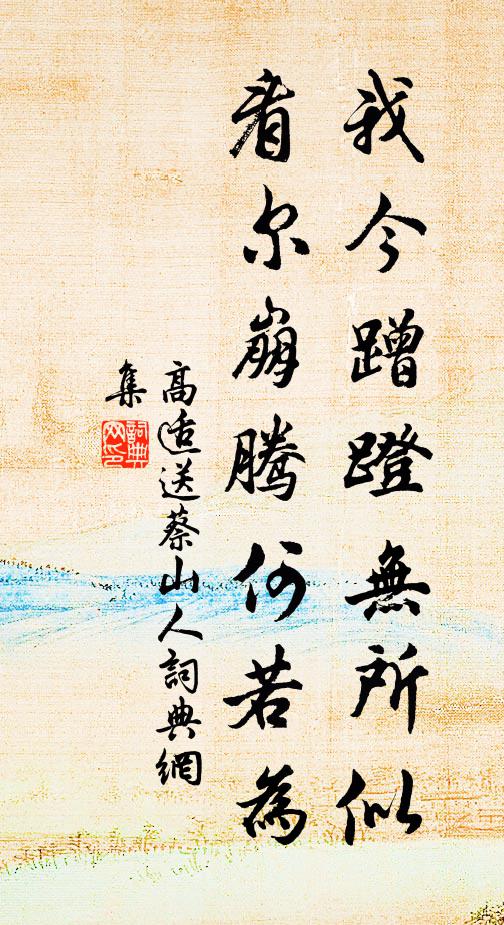 我今蹭蹬無所似
看尔崩騰何若為
高適送蔡山人詞典網
集
詞典
网印